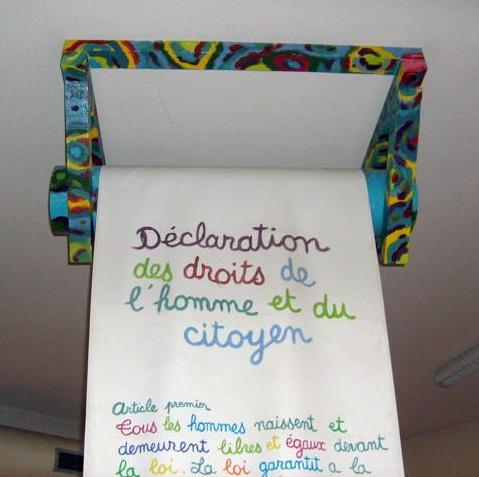 Déclaration
des droits de
l'homme et du
citoyen
Article premier
Tous les hommes naissent et
demeurent libres et égaux devant
la loi. La loi garantit a la